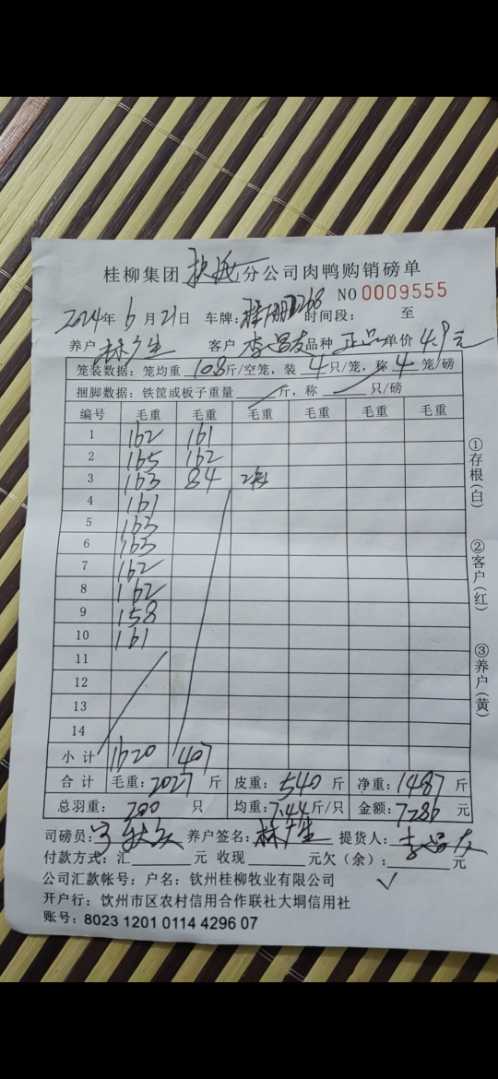 桂柳集团 分公司肉鸭购销磅单
NO 0009555
2024年 6月21日 车牌: 时间段: 至
养户 林广生 客户 李昌友 品种 正品 单价 4.9元
笼装数据:笼均重 10.8斤/空笼,装 4只/笼,称 4笼/磅
捆脚数据:铁筐或板子重量 斤,称 只/磅
编号 毛重 毛重 毛重 毛重 毛重
1 162 161
2 165 162
3 163 84
4 161
5 163
6 163
7 162
8 162
9 158
10 161
11
12
13
14
小计 1620 407
合计 毛重:2027斤 皮重:540斤 净重:1487斤
总羽重:200只 均重:7.44斤/只 金额:7286元
司磅员: 养户签名:林广生 提货人:李昌友
付款方式:汇 元 收现 元欠(余): 元
公司汇款帐号:户名:钦州桂柳牧业有限公司 ✓
开户行:钦州市区农村信用合作联社大垌信用社
账号:8023 1201 0114 4296 07
①存根(白)
②客户(红)
③养户(黄)